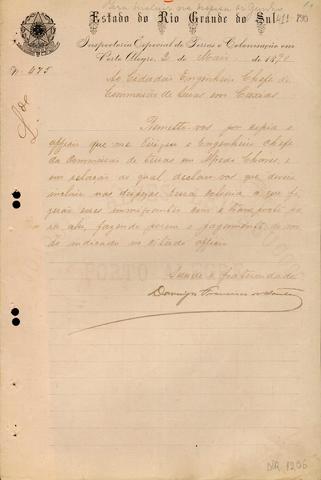 Para incluir na despesa de Junho
Estado do Rio Grande do Sul
Inspectoria Especial de Terras e Colonização em
Porto Alegre, 2 de Maio de 1891
Nº 475
Ao Cidadão Engenheiro Chefe
da Commissão de terras em Caxias
Remetto-vos por copia o
officio que me dirigiu o Engenheiro Chefe
da Commissão de terras em Alfredo Chaves, e
em relação ao qual declaro-vos que deveis
incluir nas despezas dessa colonia a que fi
zerão esses immigrantes com o transporte pa
ra ahi, fazendo porem o pagamento do mo
do indicado no citado officio.
Saude e fraternidade
Domingos Francisco dos Santos
DIR 1206